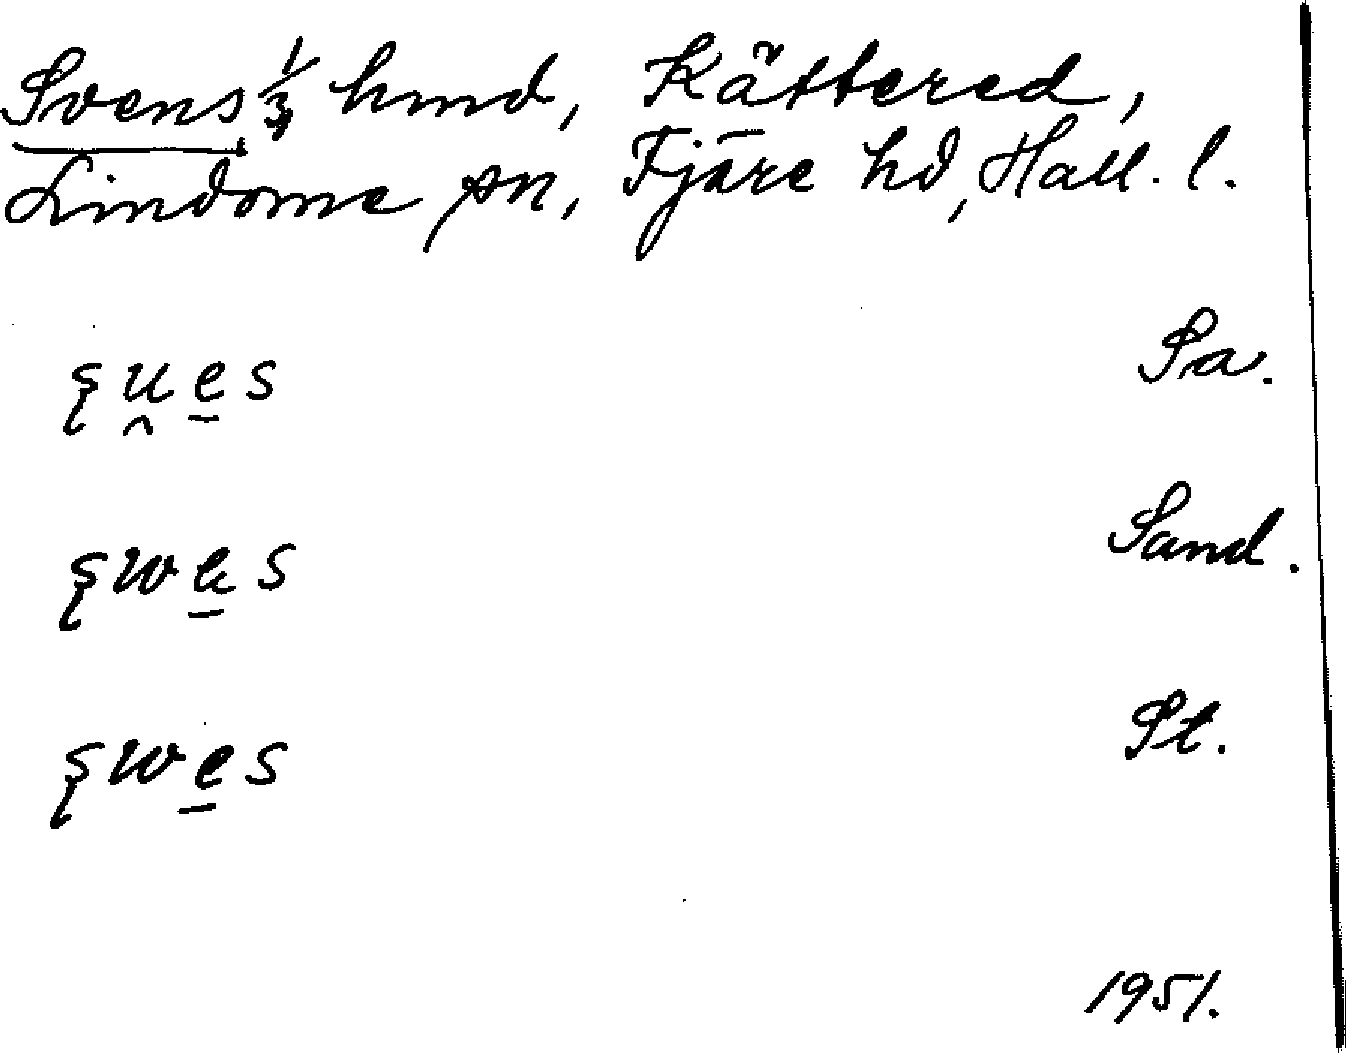 Svens 1/3 hmd, Kättered,
Lindome sn, Fjäre hd, Hall. l.
ʂu̯e̠s Sa.
ʂwe̠s Sand.
ʂwe̠s St.
1951.